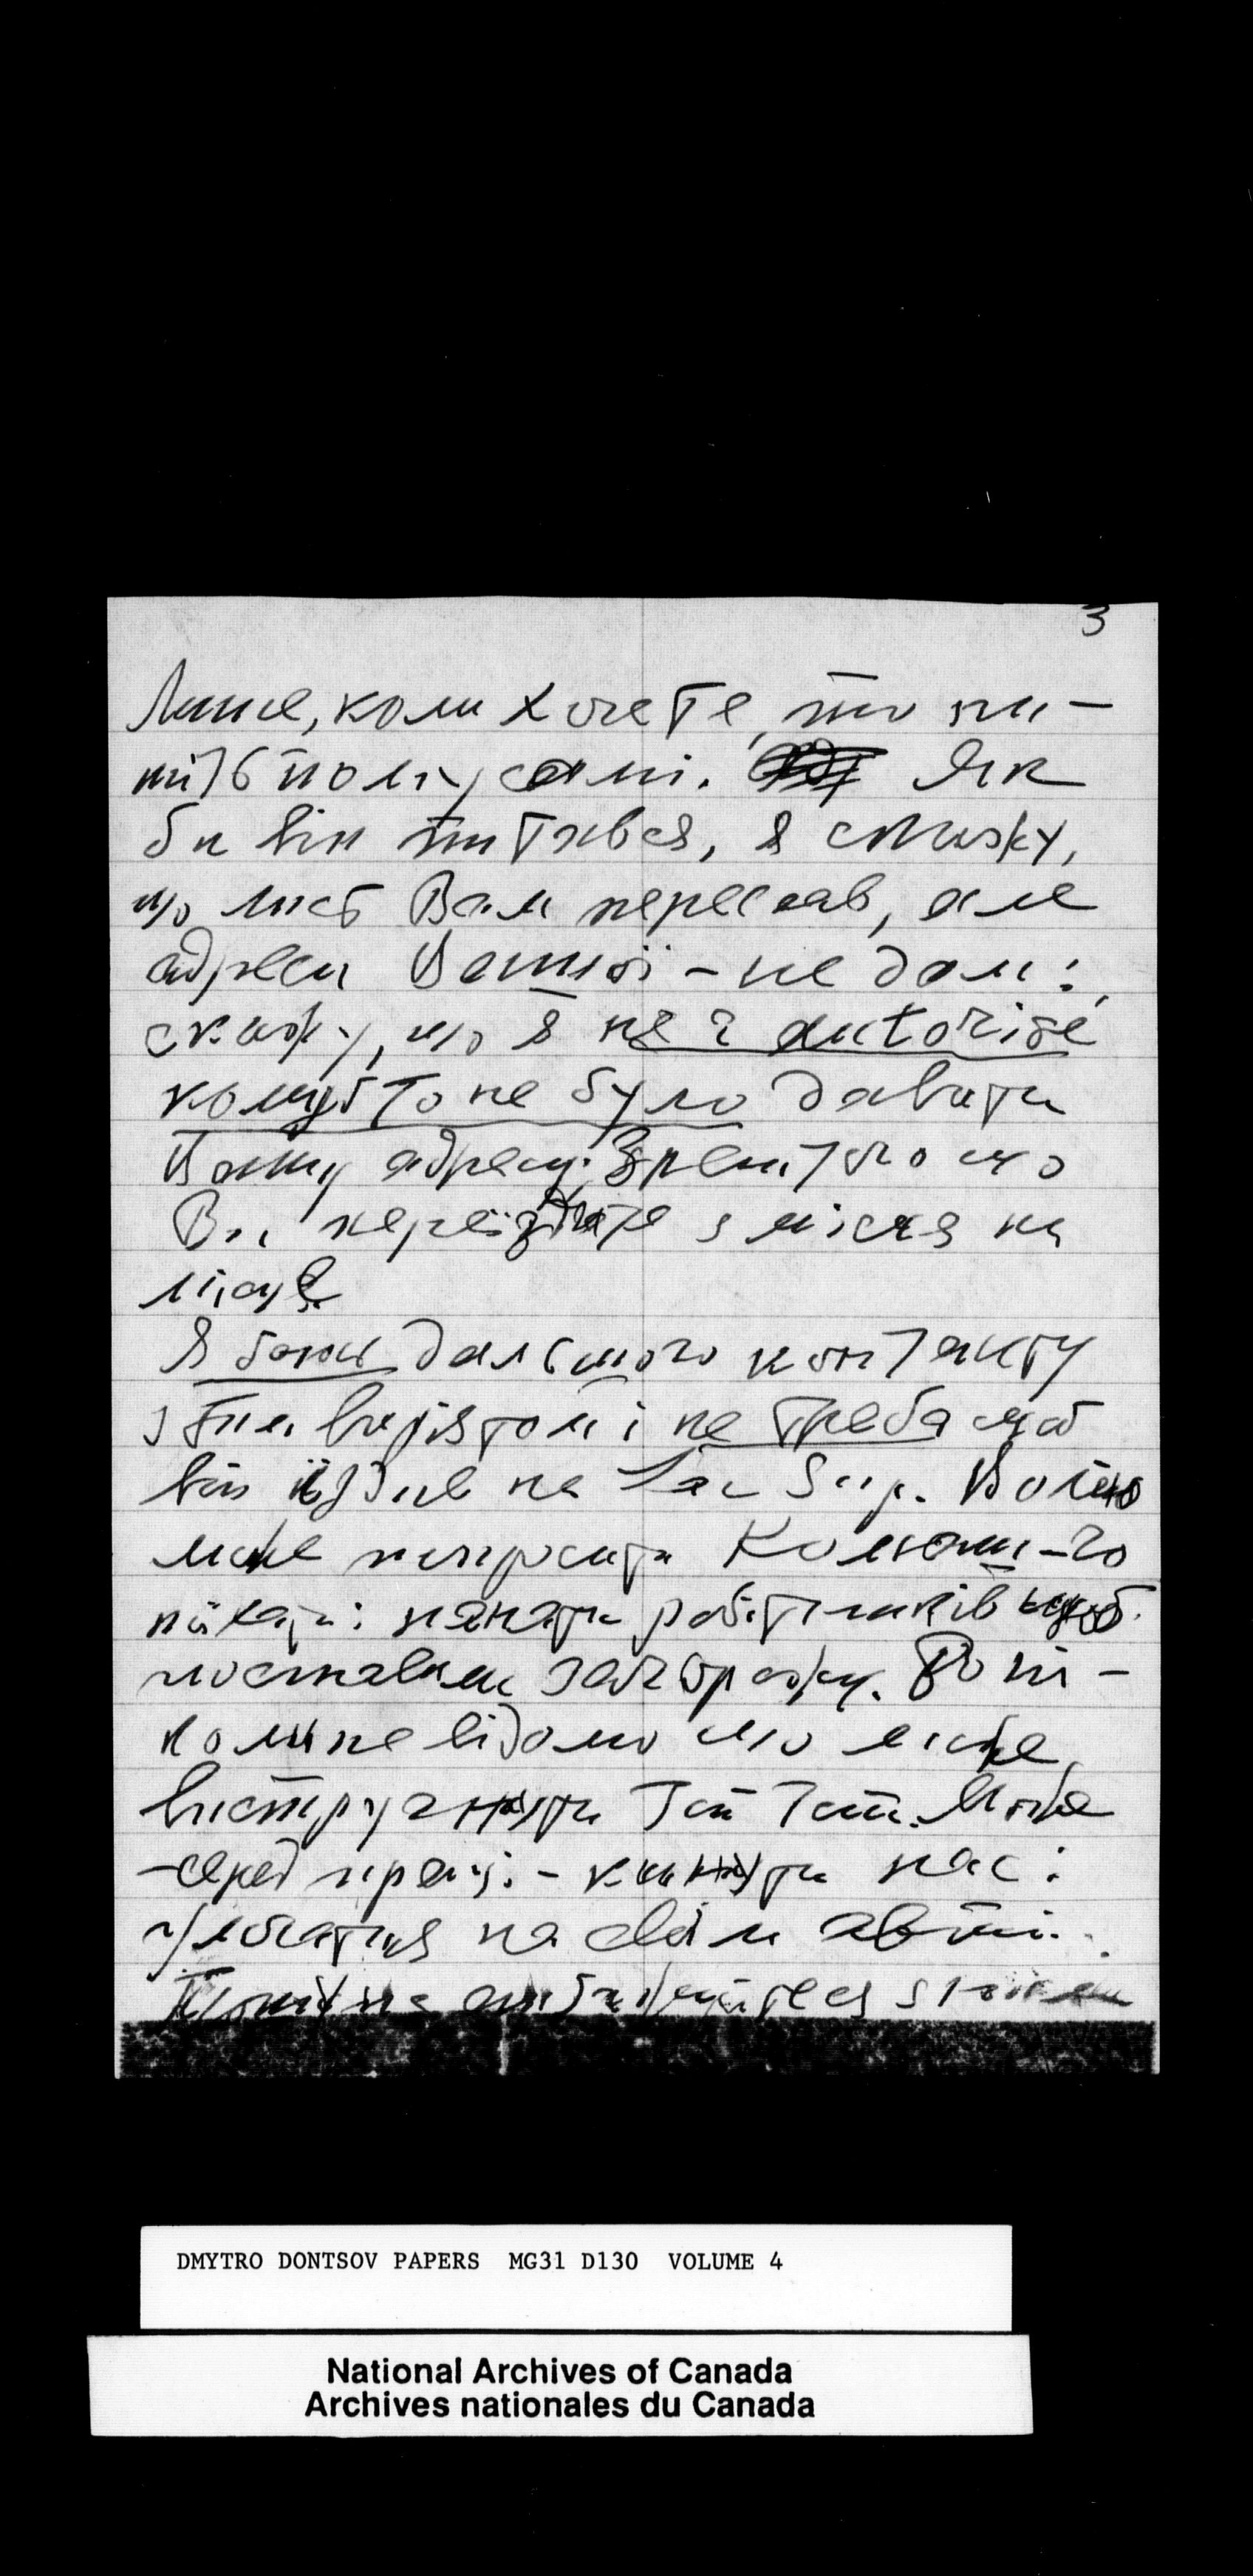 3
Лише, коли хочете, то пи-
шіть йому самі. Як
би він питався, я скажу,
що лист Вам переслав, але
адреси Вашої – не дам:
скажу, що я не є autorisé
комусь то не було давати
Вашу адресу. Зрештою що
Ви переїздите з місця на
місце
Я боюсь дальшого контакту
з тим і не треба щоб
він їздив на Lac Sup.
може попросити
робітників
поставили загорожу. Бо ні-
коли не відомо що може
вистругнути той тип. Може
-серед праці – кинути нас і
на авті.
DMYTRO DONTSOV PAPERS MG31 D130 VOLUME 4
National Archives of Canada
Archives nationales du Canada